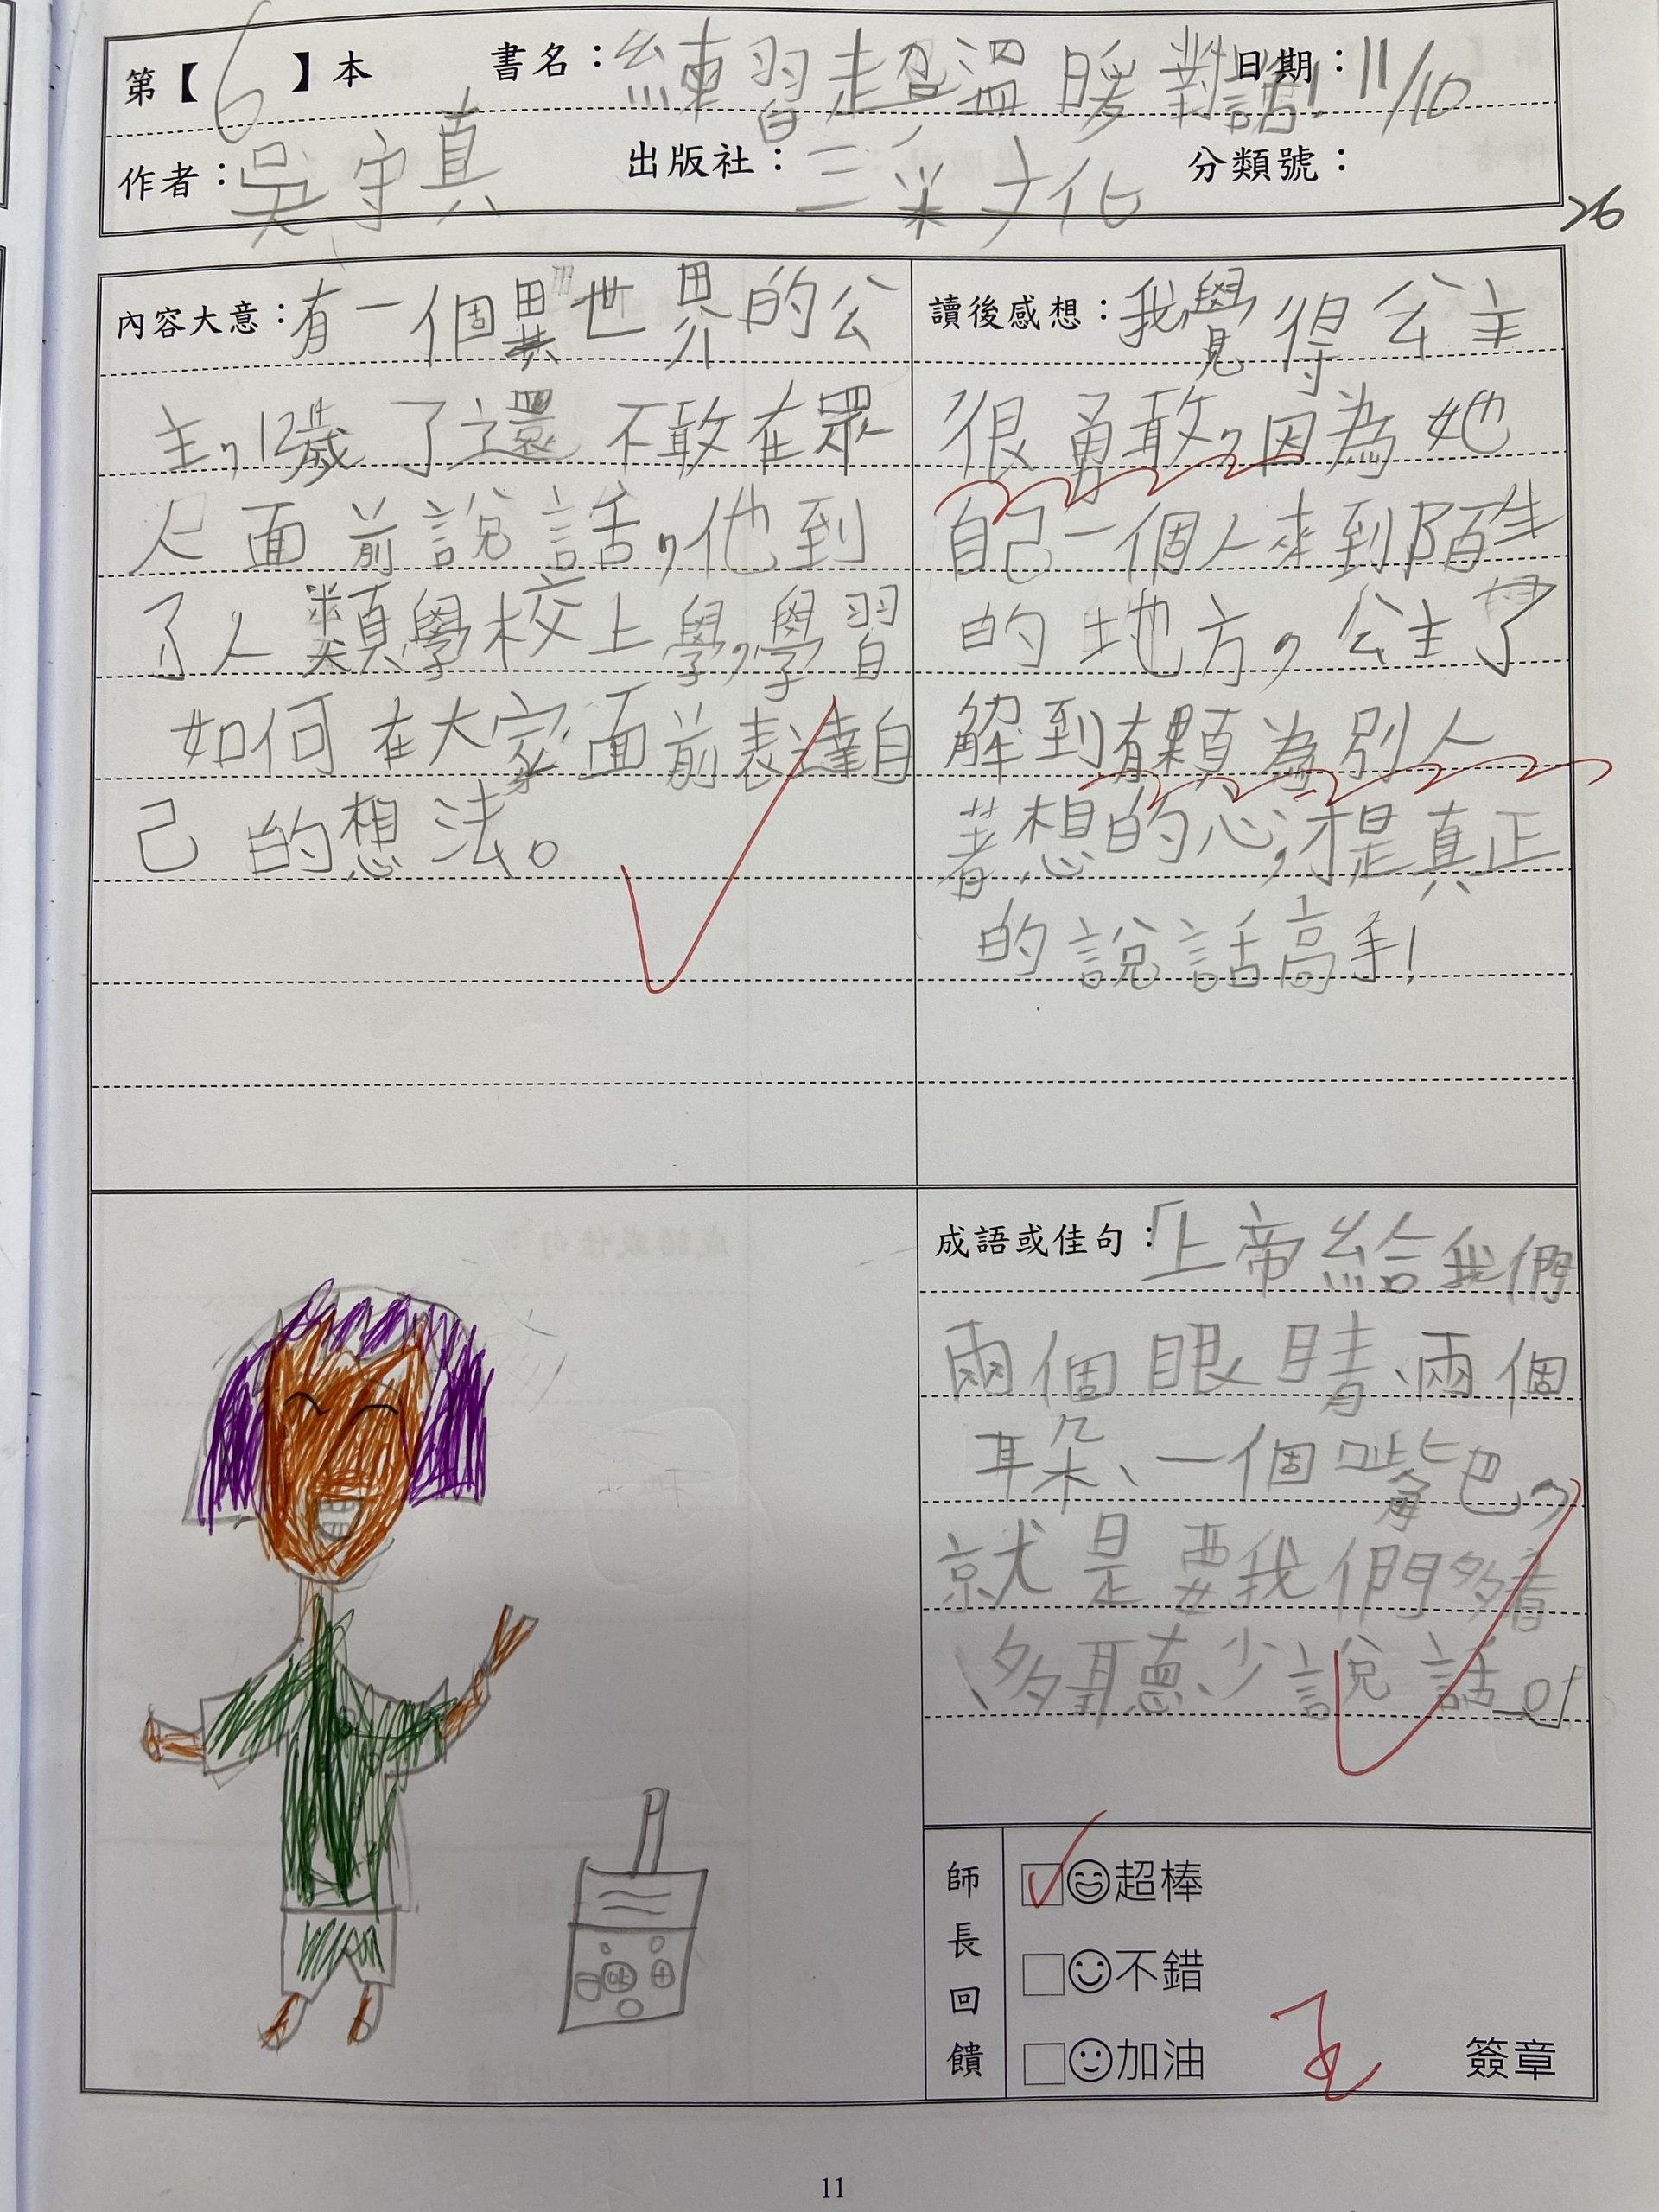 第【6】本 書名：練習超溫暖對話！ 日期：11/10
作者：吳守真 出版社：三采文化 分類號：
26
內容大意：有一個異世界的公
主，12歲了還不敢在眾
人面前說話，他到
了人類學校上學，學習
如何在大家面前表達自
己的想法。
讀後感想：我覺得公主
很勇敢，因為她
自己一個人來到陌生
的地方，公主了
解到有顆為別人
著想的心，才是真正
的說話高手！
成語或佳句：「上帝給我們
兩個眼睛、兩個
耳朵、一個嘴巴，
就是要我們多看
、多聽、少說話。」
師長回饋
超棒
不錯
加油
簽章
11